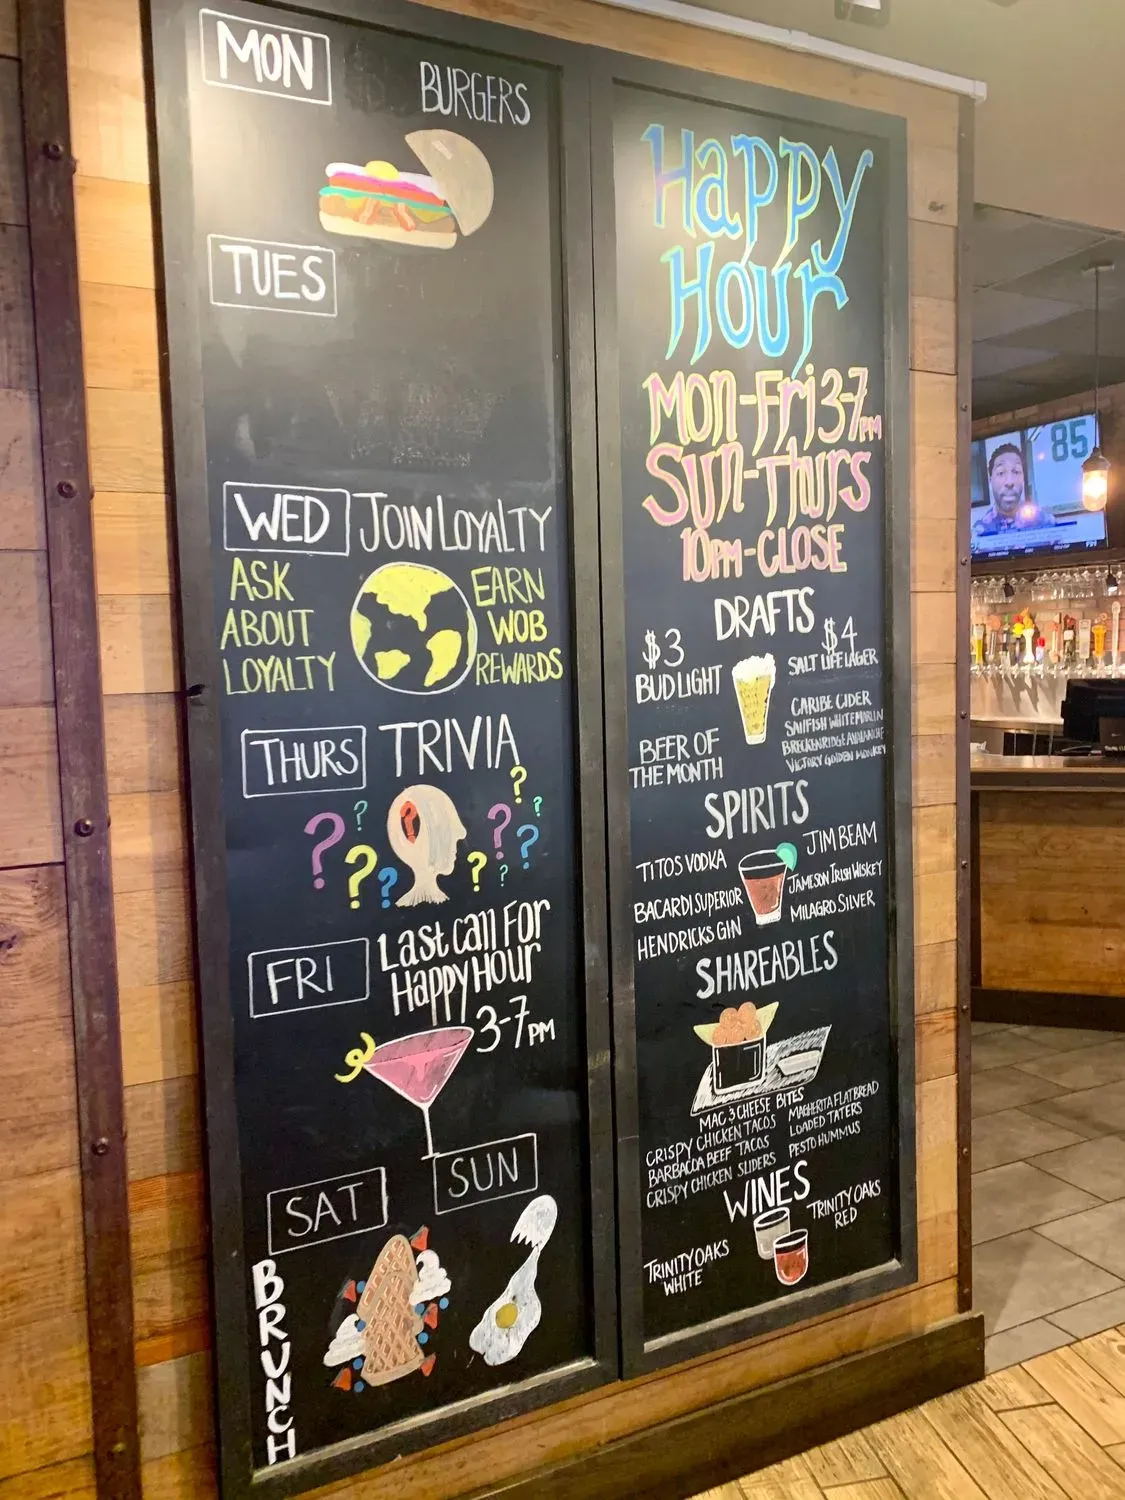 MON
BURGERS
TUES
WED
JOIN LOYALTY
ASK
ABOUT
LOYALTY
EARN
WOB
REWARDS
THURS
TRIVIA
? ? ? ? ? ? ? ? ? ?
FRI
Last Call For
Happy Hour
3-7PM
SAT
SUN
BRUNCH
Happy
Hour
Mon-Fri 3-7PM
Sun-Thurs
10PM-CLOSE
DRAFTS
$3
BUD LIGHT
BEER OF
THE MONTH
$4
SALT LIFE LAGER
CARIBE CIDER
SAILFISH WHITE MARLIN
BRECKENRIDGE AVALANCHE
VICTORY GOLDEN MONKEY
SPIRITS
TITOS VODKA
BACARDI SUPERIOR
HENDRICKS GIN
JIM BEAM
JAMESON IRISH WISKEY
MILAGRO SILVER
SHAREABLES
MAC & CHEESE BITES
CRISPY CHICKEN TACOS
BARBACOA BEEF TACOS
CRISPY CHICKEN SLIDERS
MAGHERITA FLATBREAD
LOADED TATERS
PESTO HUMMUS
WINES
TRINITY OAKS
WHITE
TRINITY OAKS
RED
85